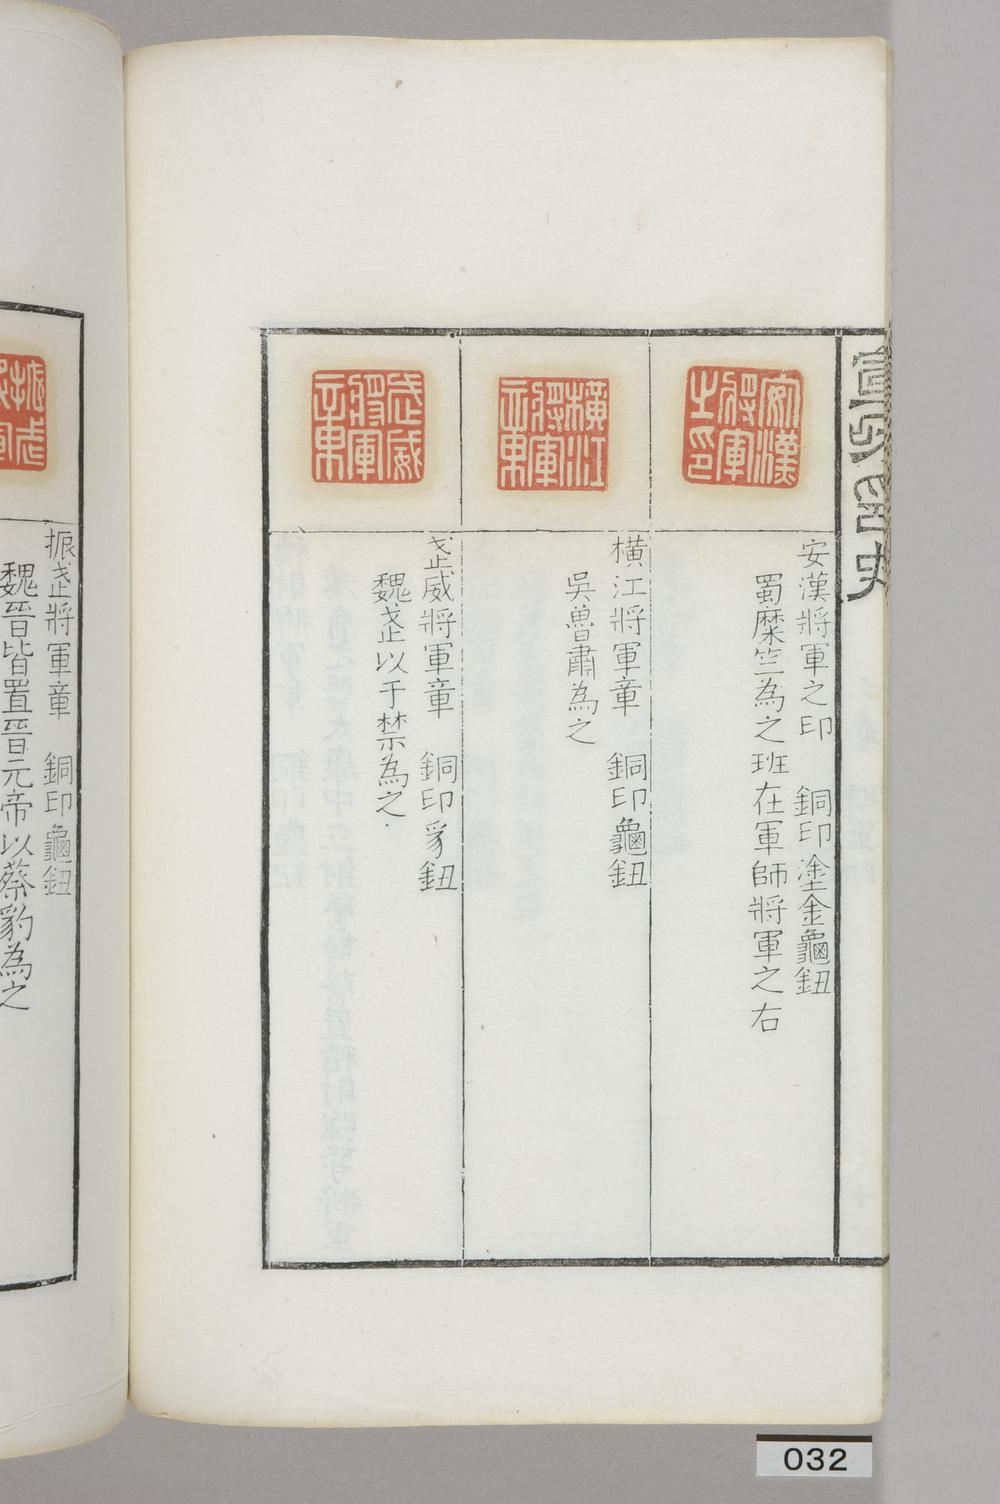 安漢將軍之印
安漢將軍之印　銅印塗金龜鈕
蜀糜竺為之班在軍師將軍之右
橫江將軍章
橫江將軍章　銅印龜鈕
吳魯肅為之
武威將軍章
武威將軍章　銅印豸鈕
魏武以于禁為之
振武將軍章　銅印龜鈕
魏晉皆置晉元帝以蔡豹為之
032